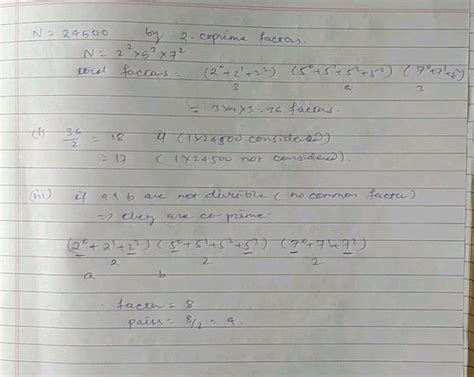 N = 24500 by 2-coprime factors.
N = 2² × 5³ × 7²
total factors = (2⁰+2¹+2²) (5⁰+5¹+5²+5³) (7⁰+7¹+7²)
3 4 3
= 3×4×3 = 36 factors.
(i) 36/2 = 18 if (1×24500 considered)
= 17 (1×24500 not considered).
(iii) if a & b are not divisible (no common factor)
⇒ they are coprime.
(2⁰+2¹+2²) (5⁰+5¹+5²+5³) (7⁰+7¹+7²)
2 2 2
a b
factor = 8
pairs = 8/2 = 4.